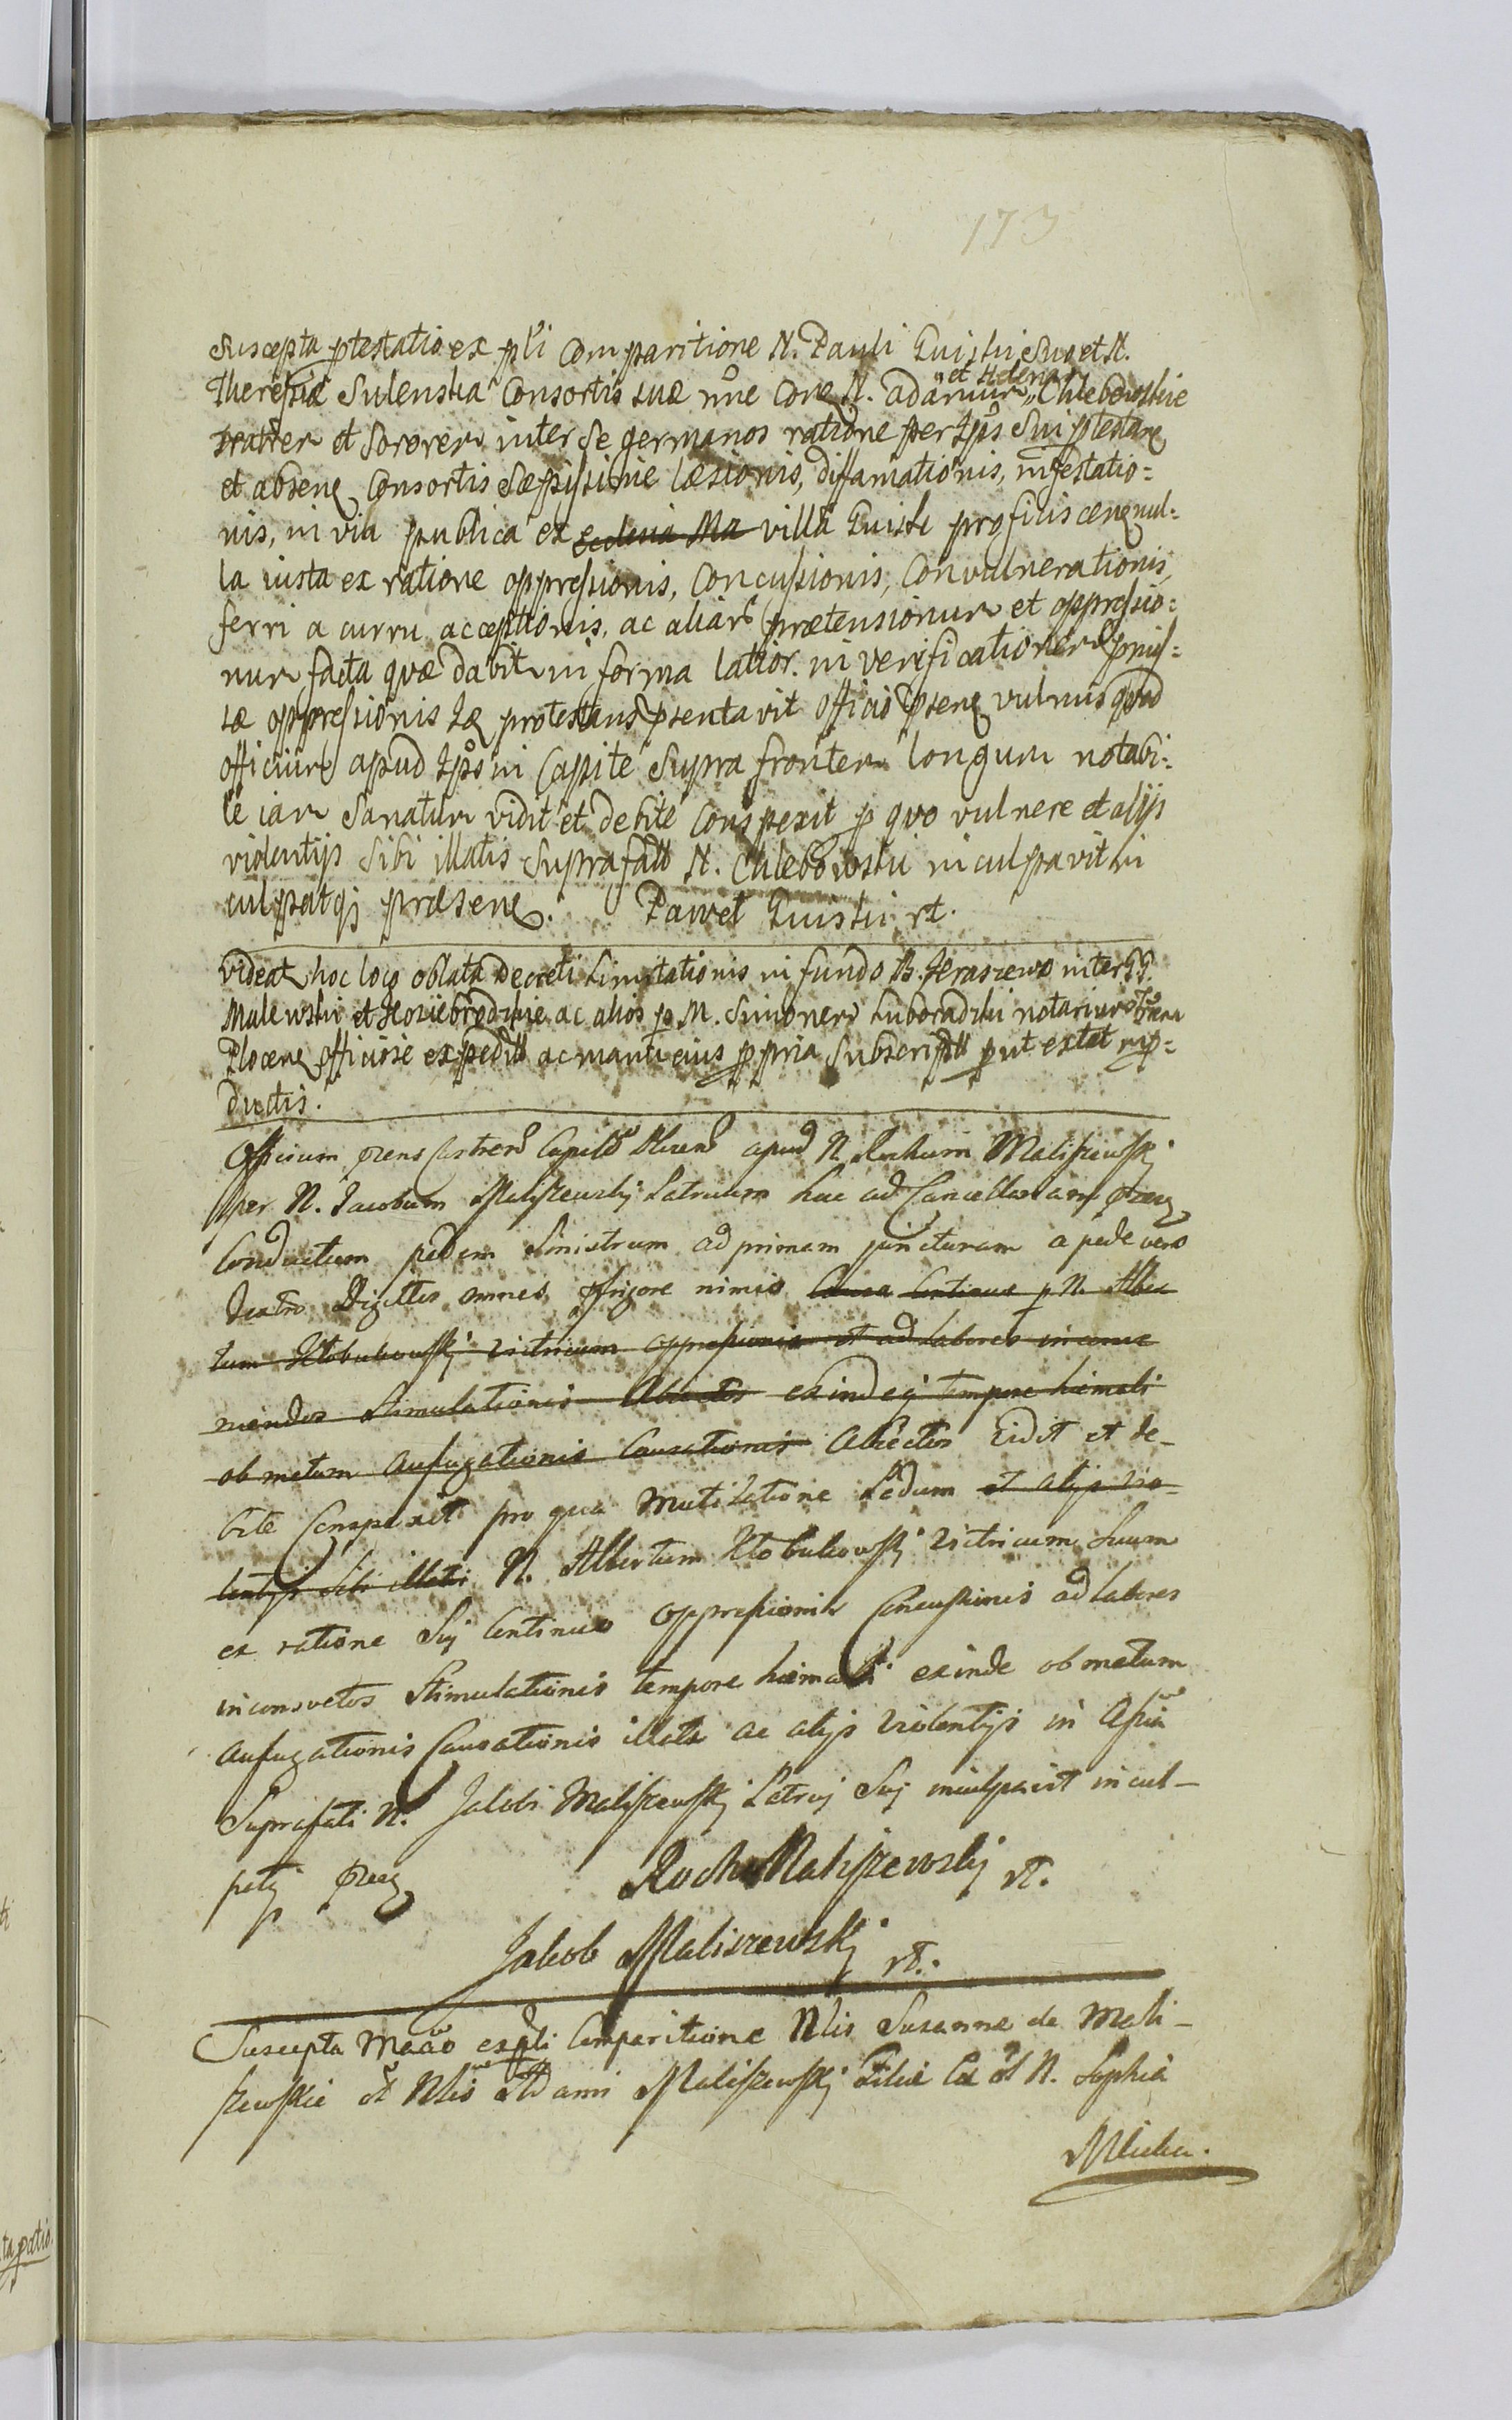 173
Suscepta ptestatio ex pli Comparitione N. Pauli Guiski Suo et N.
Theresiæ Sulenska Consortis suæ nne Cone N. adamum „et Helenam„ Chlebowskie
Fratrem et Sororem inter se germanos ratione per Ipos Sui ptestang
et abseng Consortis Sæpissime læsionis, diffamationis, infestatio=
nis, in via publica ex Ecclesia Ma villa Guiski proficisceng nul=
la iusta ex ratione oppressionis, Concussionis, Convulnerationis,
ferri a curru acceptionis, ac aliar prætensionum et oppressio=
num facta quæ dabit in forma latior. in verificationem pmis=
sæ oppressionis Iq protestans psentavit officio pseng vulnus quod
officium apud Ipsũ in Capite Supra frontem longum notabi=
le iam Sanatum vidit et debite Conspexit p quo vulnere et alijs
violentijs Sibi illatis Supra fatt N. Chlebowski inculpavit in
culpatqj præseng. Paweł Guiski rt.
videat hoc loco oblata Decreti Limitationis in fundo B. Geraszewo inter GG.
Malewski et Kosiebrodzkie ac alios p M. Simonem Luboradzki notarium Trẽm
Ploceng officiose expeditt ac manu ejus ppria Subscriptt put extat in p=
ductis.
Officium præns Castren Capitl apud N. Rochum Maliszewskj
per N. Jacobum Maliszewskj Patruum huc ad Cancellariam præng
Conductum pedem Sinistrum ad primam juncturam a pede vero
dextro Digittos omnes, frigore nimio Causa Continua p N. Alber
tum Kłobukowskj vitricum oppressionis et ad labores inconsve
niendos Stimulationis Abiectos exindeqj tempore hiemali
ob metum aufugationis Causationis Abiectos Vidit et de-
bite Conspexit pro qua Mutilatione Pedum et alijs vio-
lentijs Sibi illatis N. Albertum Kłobukowskj Vitricum Suum
ex ratione Suj Continuo oppressionis Concussionis ad labores
inconsvetos Stimulationis tempore hiemali exinde ob metum
aufugationis Causationis illata ac alijs Violentijs in Assia
Suprafati N. Jacobi Maliszewskj Patruj Suj inculpavit incul-
patqj præng Roch Maliszewskj rt.
Jakob Maliszewskj rt.
Suscepta Mãao ex pli Comparitione Nlis Susanne de Mali-
szewskie ol Nlis Adami Maliszewskj Filiæ Ex ol N. Sophia
Mlicka.